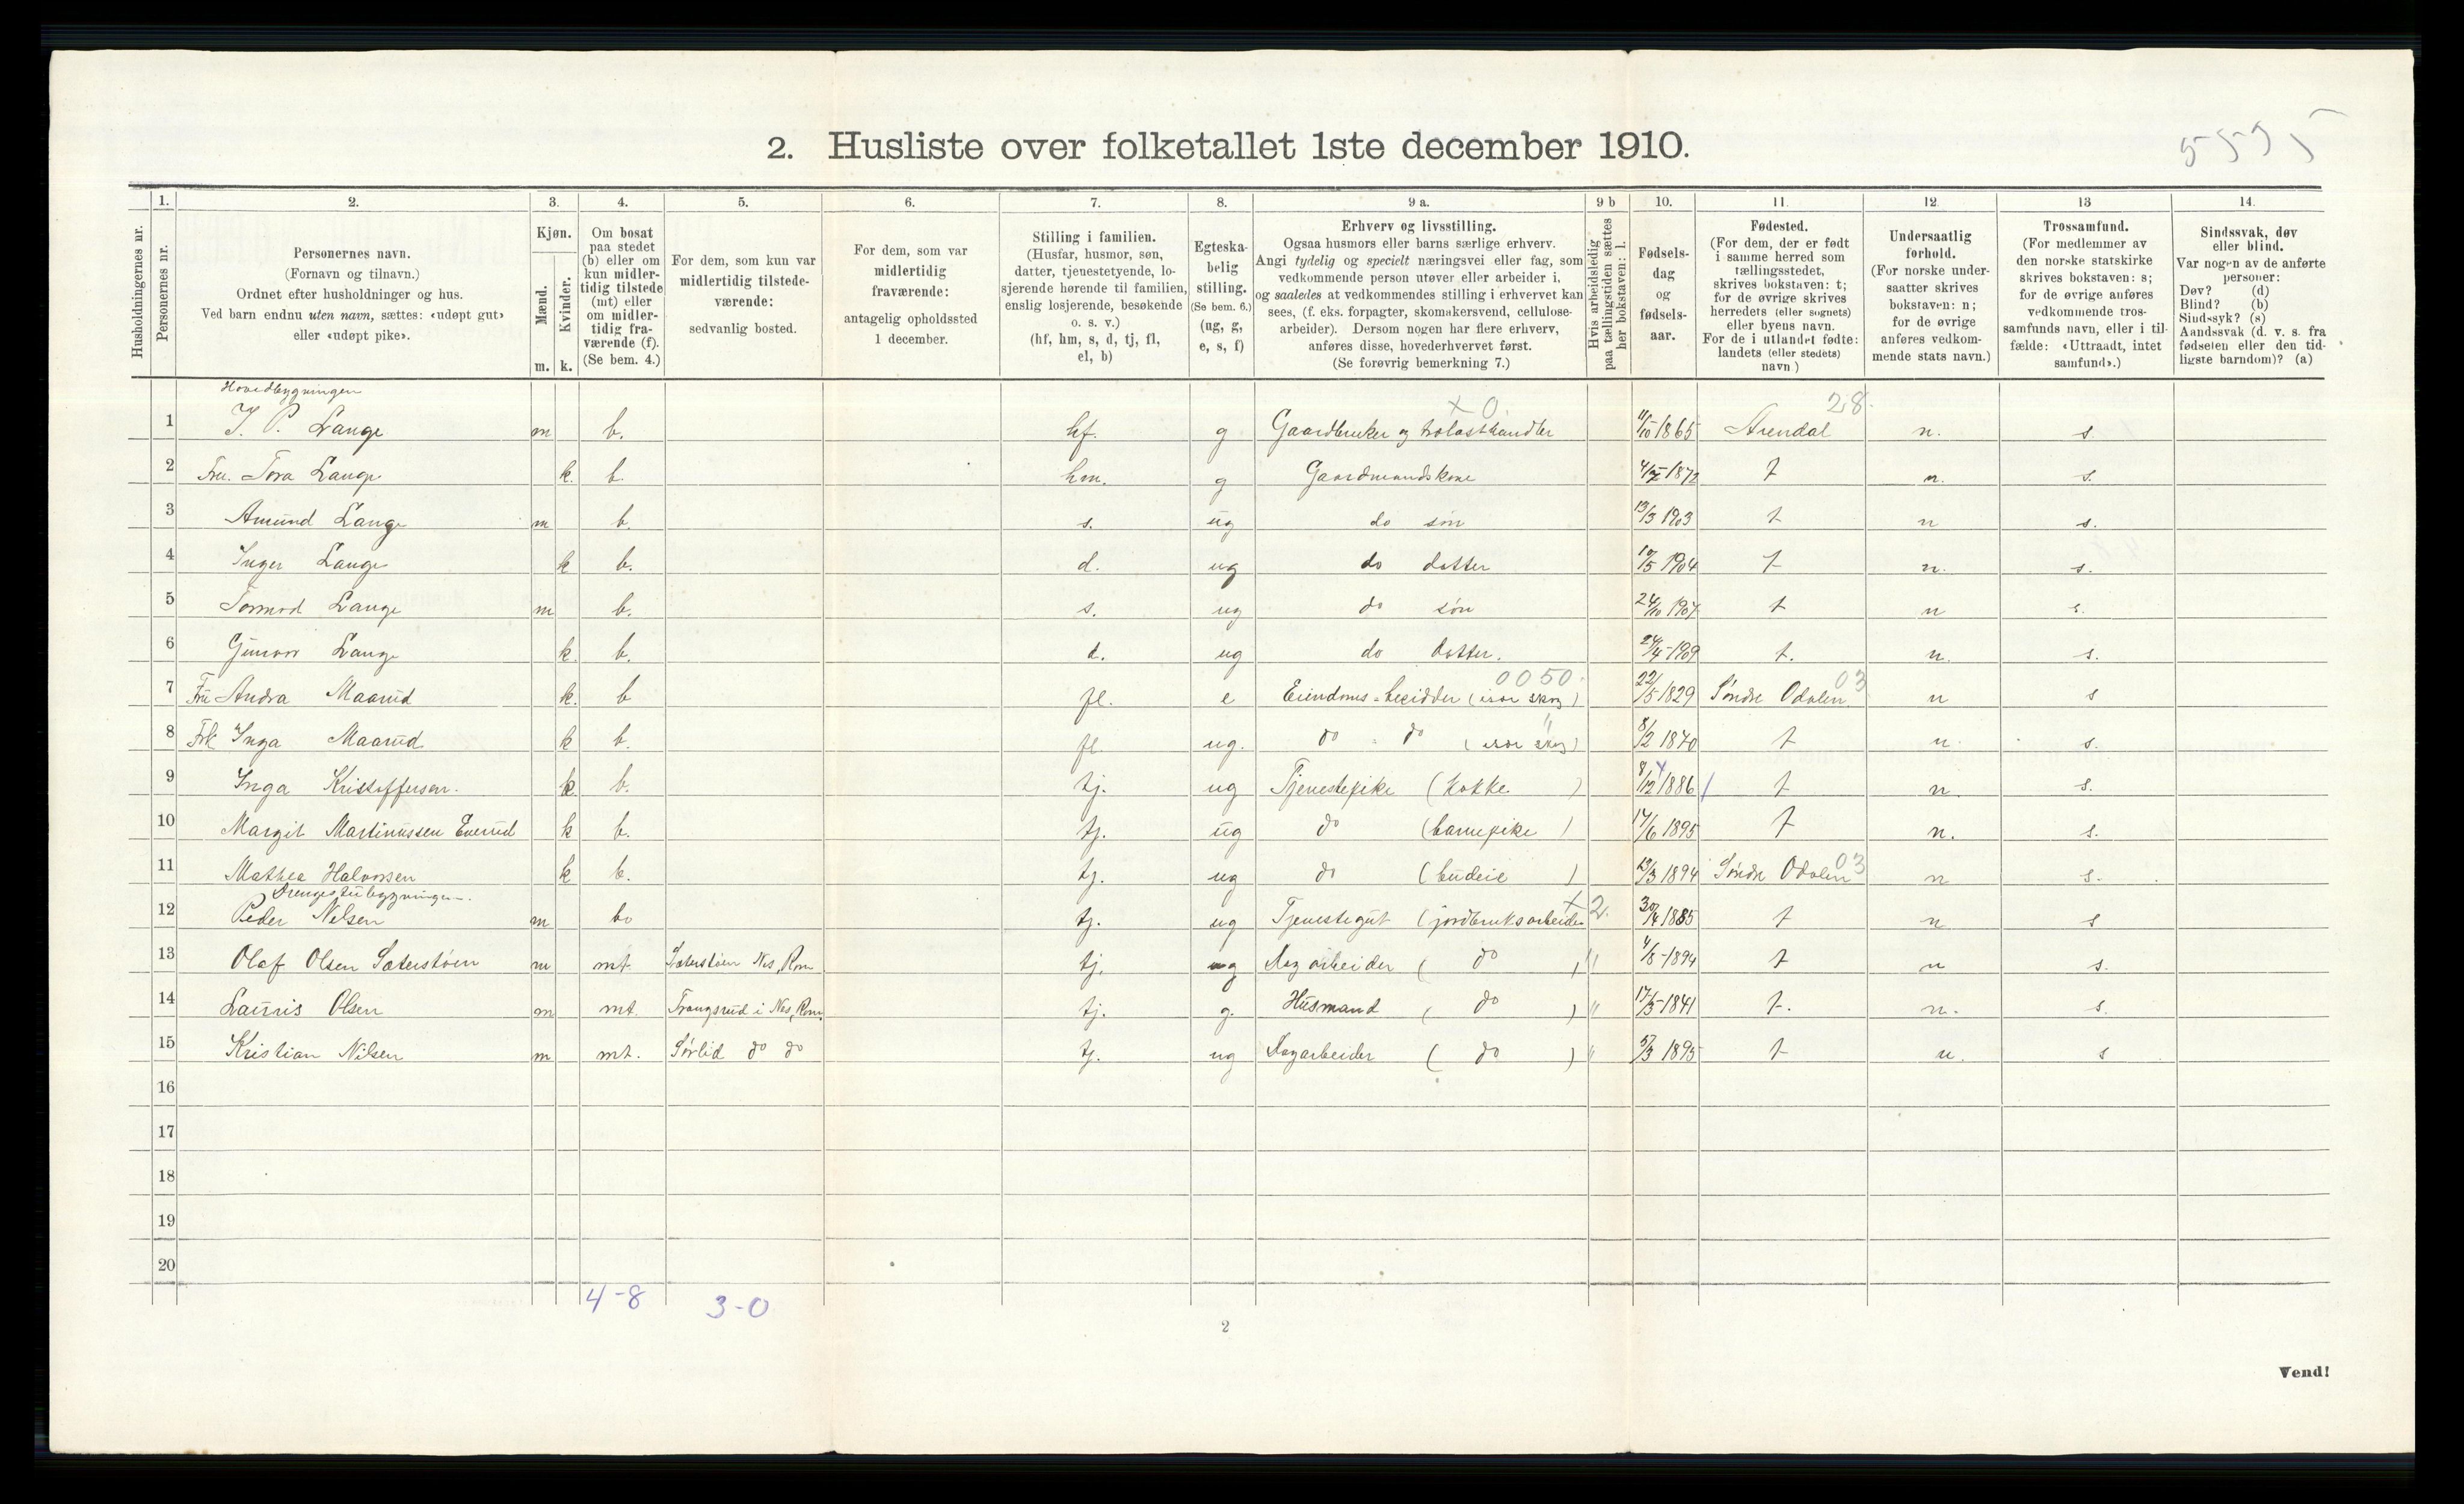 2. Husliste over folketallet 1ste december 1910.
1. 2. 3. 4. 5. 6. 7. 8. 9 a. 9 b 10. 11. 12. 13 14.
Husholdningernes nr.
Personernes nr.
Personernes navn.
(Fornavn og tilnavn.)
Ordnet efter husholdninger og hus.
Ved barn endnu uten navn, sættes: «udøpt gut»
eller «udøpt pike».
Kjøn.
Mænd.
Kvinder.
m. k.
Om bosat
paa stedet
(b) eller om
kun midler-
tidig tilstede
(mt) eller
om midler-
tidig fra-
værende (f).
(Se bem. 4.)
For dem, som kun var
midlertidig tilstede-
værende:
sedvanlig bosted.
For dem, som var
midlertidig
fraværende:
antagelig opholdssted
1 december.
Stilling i familien.
(Husfar, husmor, søn,
datter, tjenestetyende, lo-
sjerende hørende til familien,
enslig losjerende, besøkende
o. s. v.)
(hf, hm, s, d, tj, fl,
el, b)
Egteska-
belig
stilling.
(Se bem. 6.)
(ug, g,
e, s, f)
Erhverv og livsstilling.
Ogsaa husmors eller barns særlige erhverv.
Angi tydelig og specielt næringsvei eller fag, som
vedkommende person utøver eller arbeider i,
og saaledes at vedkommendes stilling i erhvervet kan
sees, (f. eks. forpagter, skomakersvend, cellulose-
arbeider). Dersom nogen har flere erhverv,
anføres disse, hovederhvervet først.
(Se forøvrig bemerkning 7.)
Hvis arbeidsledig
paa tællingstiden sættes
her bokstaven: l.
Fødsels-
dag
og
fødsels-
aar.
Fødested.
(For dem, der er født
i samme herred som
tællingsstedet,
skrives bokstaven: t;
for de øvrige skrives
herredets (eller sognets)
eller byens navn.
For de i utlandet fødte:
landets (eller stedets)
navn.)
Undersaatlig
forhold.
(For norske under-
saatter skrives
bokstaven: n;
for de øvrige
anføres vedkom-
mende stats navn.)
Trossamfund.
(For medlemmer av
den norske statskirke
skrives bokstaven: s;
for de øvrige anføres
vedkommende tros-
samfunds navn, eller i til-
fælde: «Uttraadt, intet
samfund».)
Sindssvak, døv
eller blind.
Var nogen av de anførte
personer:
Døv? (d)
Blind? (b)
Sindssyk? (s)
Aandssvak (d. v. s. fra
fødselen eller den tid-
ligste barndom)? (a)
Hovedbygningen
x 0 28.
1 J. P. Lange m b. hf. g Gaardbruker og trælasthandler 11/10 1865 Arendal n. s.
2 Fru. Tora Lange k. b. hm. g Gaardmandskone 1872 t n. s.
3 Amund Lange m b. s. ug do søn 13/3 1903 t n s.
4 Inger Lange k b. d. ug do datter 1904 t n. s.
5 Tormod Lange m b. s. ug do søn 24/10 1907 t n s.
6 Gunvor Lange k. b. d. ug do datter. 24/4 1909 t. n. s.
0050. 03
7 Fru Andra Maarud k. b fl. e Eiendoms-besidder (især skog) 22/5 1829 Søndre Odalen n s
8 Frk Inga Maarud k b. fl ug. do - do (især skog) 8/2 1870 t n. s.
9 Inga Kristoffersen. k b. tj. ug Tjenestepike (kokke ) 8/12 1886 t n. s.
10 Margit Martinussen Enerud k b. tj. ug do (barnepike ) 17/6 1895 t n. s.
03
11 Mathea Halvorsen k b. tj. ug do (budeie ) 1894 Søndre Odalen n s.
Drengestubygningen.
x 2.
12 Peder Nelsen m b. tj. ug Tjenestegut (jordbruksarbeider 30/4 1885 t n s
13 Olaf Olsen Sæterstøen m mt Sæterstøen Nes, Rom tj. ug Dagarbeider ( do ) " 4/8 1894 t n s.
14 Lauris Olsen m mt. Trangsrud i Nes, Rom. tj. g. Husmand ( do ) " 17/5 1841 t. n. s.
15 Kristian Nilsen m mt. Sørlid do do tj. ug Dagarbeider ( do ) " 5/3 1895 t n. s
16
17
18
19
20
4-8 3-0
2
Vend!